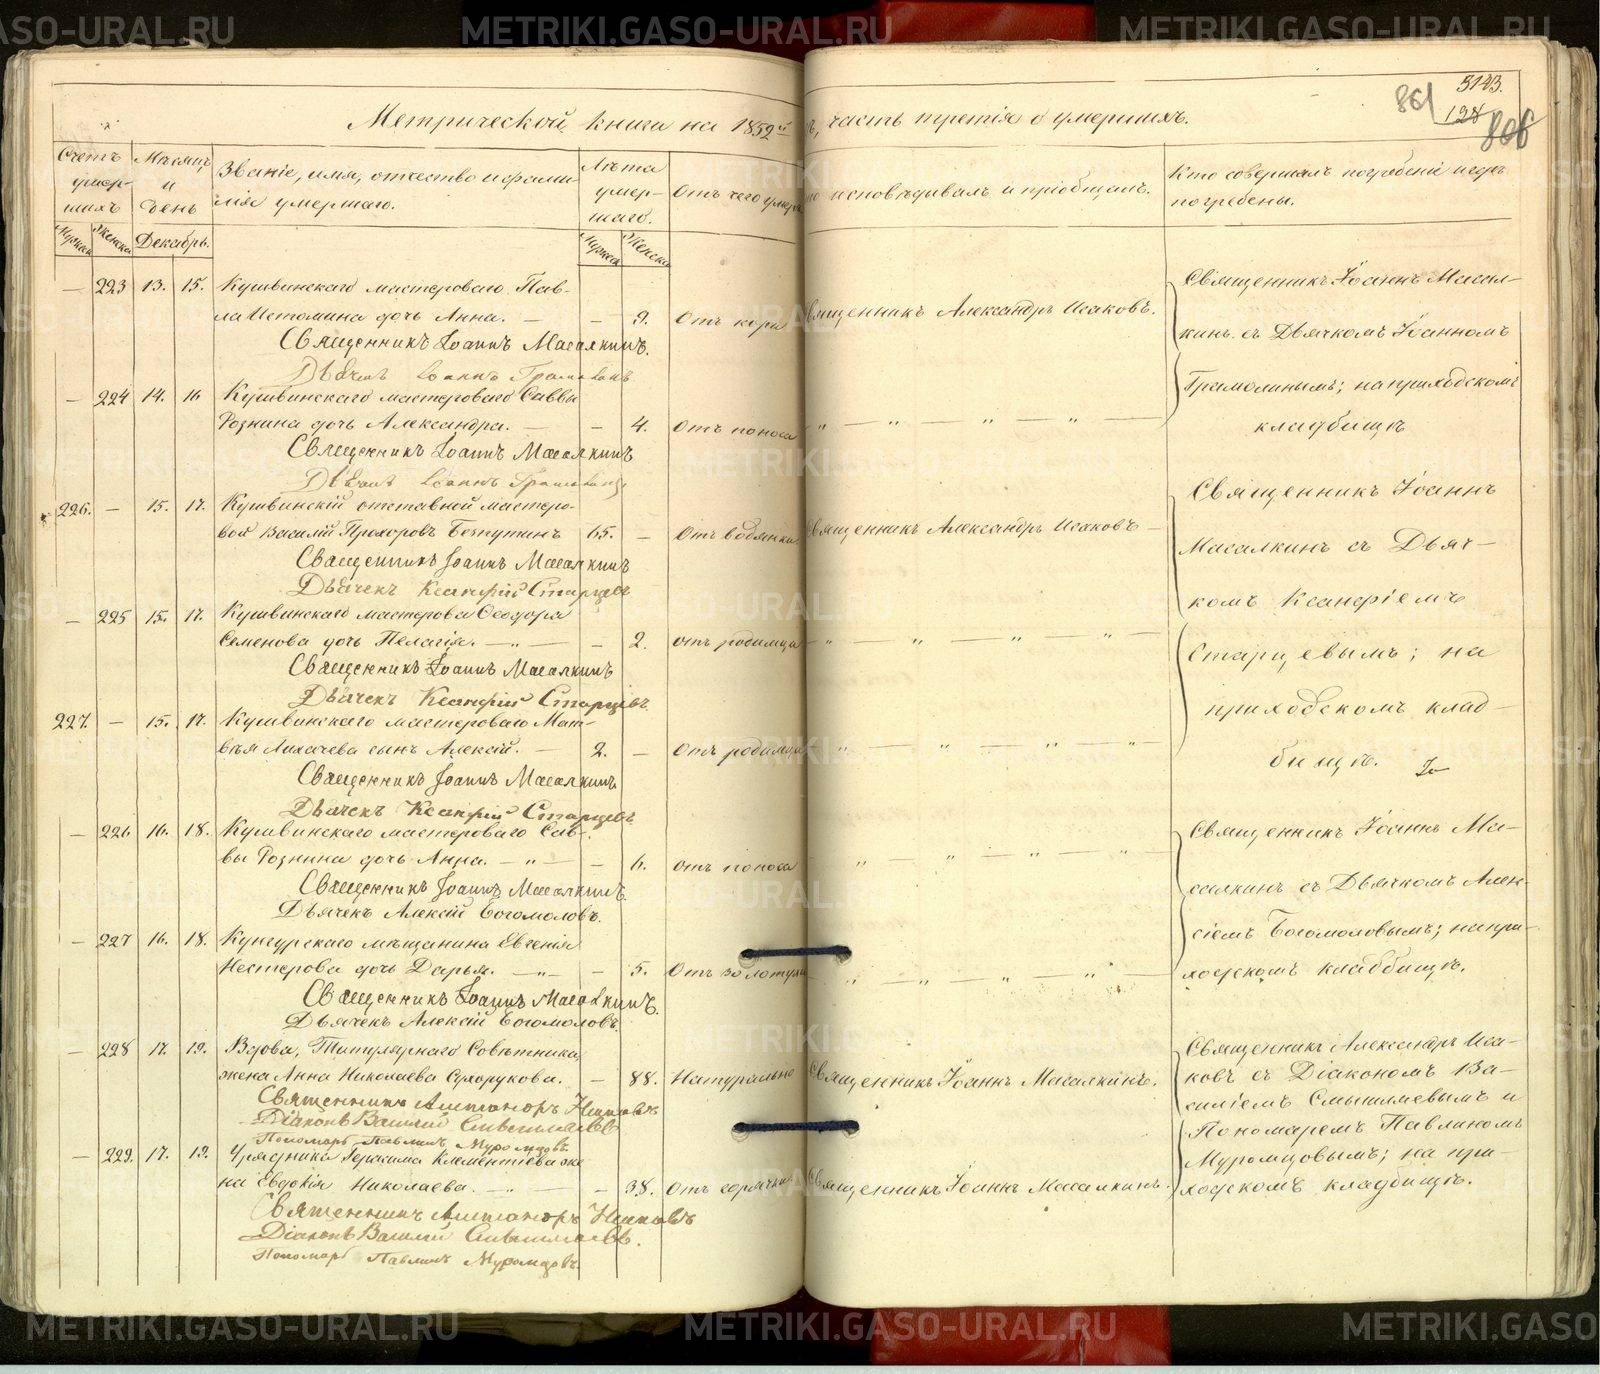 METRIKI.GASO-URAL.RU
Метрической книги на 1852й г., часть третія о умершихъ.
861
5143.
128
806
Счетъ умер-шихъ
Мѣсяцъ и день
Званіе, имя, отчество и фами-
лія умершаго.
Лѣта умер-шаго.
Отъ чего умеръ
Кто исповѣдывалъ и пріобщалъ.
Кто совершалъ погребеніе и гдѣ
погребены.
Мужска Женска Декабрь. Мужска Женска
— 223 13. 15. Кушвинскаго мастероваго Пав-
ла Истомина дочь Анна. — — 9. Отъ кори Священникъ Александръ Исаковъ.
Священникъ Іоаннъ Масалкинъ.
Дьячекъ Іоаннъ Грамолинъ
Священникъ Іоаннъ Масал-
кинъ съ Дьячкомъ Іоанномъ
Грамолинымъ; на приходскомъ
кладбищѣ
— 224 14. 16 Кушвинскаго мастероваго Саввы
Рознина дочь Александра. — — 4. Отъ поноса „ — „ — „ — „ —
Священникъ Іоаннъ Масалкинъ
Дьячекъ Іоаннъ Грамолинъ
226. — 15. 17. Кушвинскій отставной мастеро-
вой Василій Прохоровъ Безпутинъ 65. — Отъ водянки Священникъ Александръ Исаковъ —
Священникъ Іоаннъ Масалкинъ
Дьячекъ Ксанфій Старцевъ
Священникъ Іоаннъ
Масалкинъ съ Дьяч-
комъ Ксанфіемъ
Старцевымъ; на
приходскомъ клад-
бищѣ.
— 225 15. 17. Кушвинскаго мастерова Ѳеодора
Семенова дочь Пелагія. — „ — — 2. отъ родимца — „ — „ — „ — „ —
Священникъ Іоаннъ Масалкинъ
Дьячекъ Ксанфій Старцевъ.
227. — 15. 17. Кушвинскаго мастероваго Мат-
вѣя Лихачева сынъ Алексій. — 2. — Отъ родимца „ — „ — „ — „ —
Священникъ Іоаннъ Масалкинъ
Дьячекъ Ксанфій Старцевъ.
— 226 16. 18. Кушвинскаго мастероваго Сав-
вы Рознина дочь Анна. — „ — — 6. отъ поноса „ — „ — „ — „ —
Священникъ Іоаннъ Масалкинъ.
Дьячекъ Алексій Богомоловъ.
Священникъ Іоаннъ Ма-
салкинъ съ Дьячкомъ Алек-
сіемъ Богомоловымъ; на при-
ходскомъ кладбищѣ.
— 227 16. 18. Кунгурскаго мѣщанина Евгенія
Нестерова дочь Дарья. — „ — — 5. Отъ золотухи — „ — „ — „ — „ —
Священникъ Іоаннъ Масалкинъ.
Дьячекъ Алексій Богомоловъ.
— 228 17. 19. Вдова, Титулярнаго Совѣтника
жена Анна Николаева Сухорукова. — 88. Натурально Священникъ Іоаннъ Масалкинъ.
Священникъ Александръ Исаковъ
Діаконъ Василій Смышляевъ
Пономарь Павлинъ Муромцовъ.
Священникъ Александръ Иса-
ковъ съ Діакономъ Ва-
силіемъ Смышляевымъ и
Пономаремъ Павлиномъ
Муромцовымъ; на при-
ходскомъ кладбищѣ.
— 229. 17. 19. Урядника Герасима Клементіева же-
на Евдокія Николаева. — „ — — 38. Отъ горячки Священникъ Іоаннъ Масалкинъ.
Священникъ Александръ Исаковъ
Діаконъ Василій Смышляевъ.
Пономарь Павлинъ Муромцовъ.